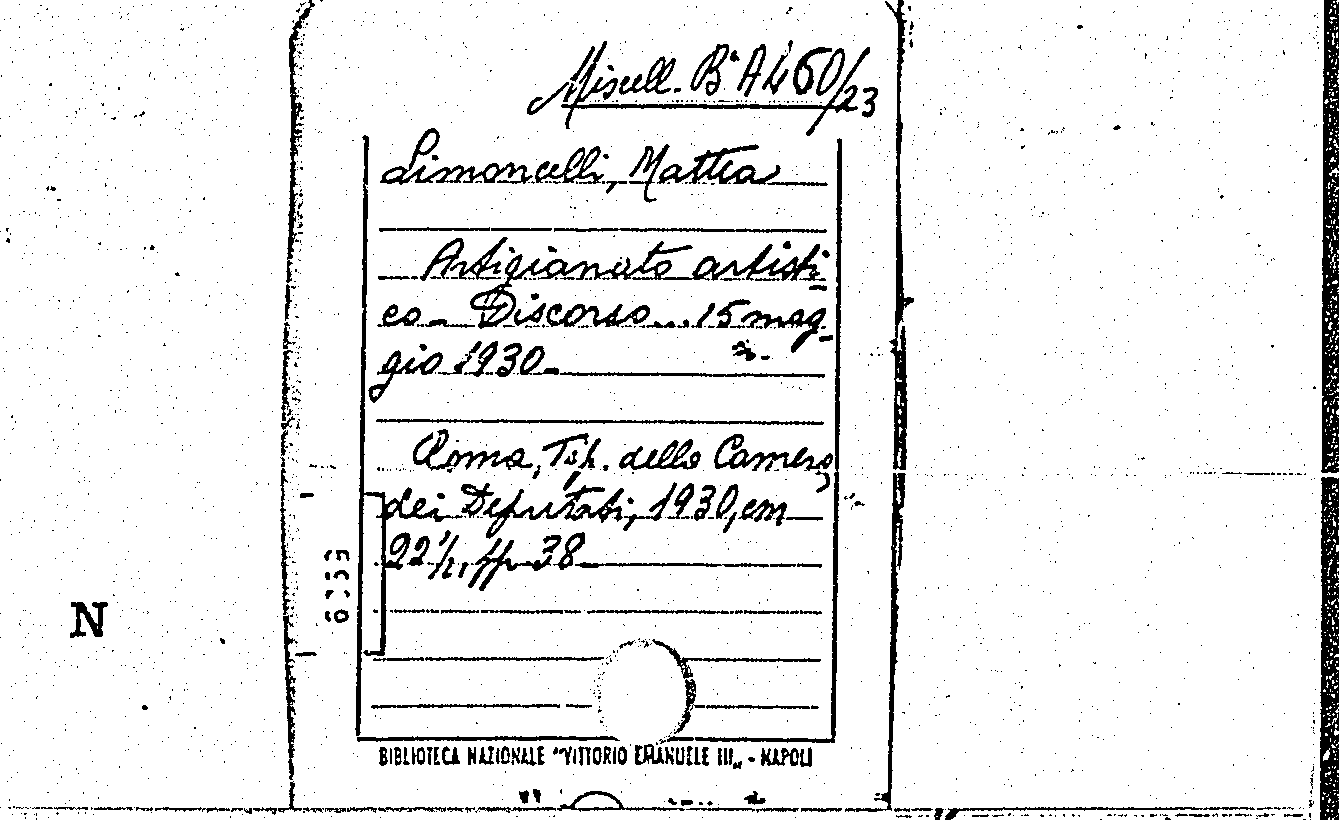 Miscell. Bª A 460/23
Limoncelli, Mattia
Artigianato artisti-
co - Discorso ... 15 mag-
gio 1930 -
Roma, Tip. della Camera
dei Deputati, 1930, cm
22 1/2, pp. 38 -
N
BIBLIOTECA NAZIONALE "VITTORIO EMANUELE III„ - NAPOLI